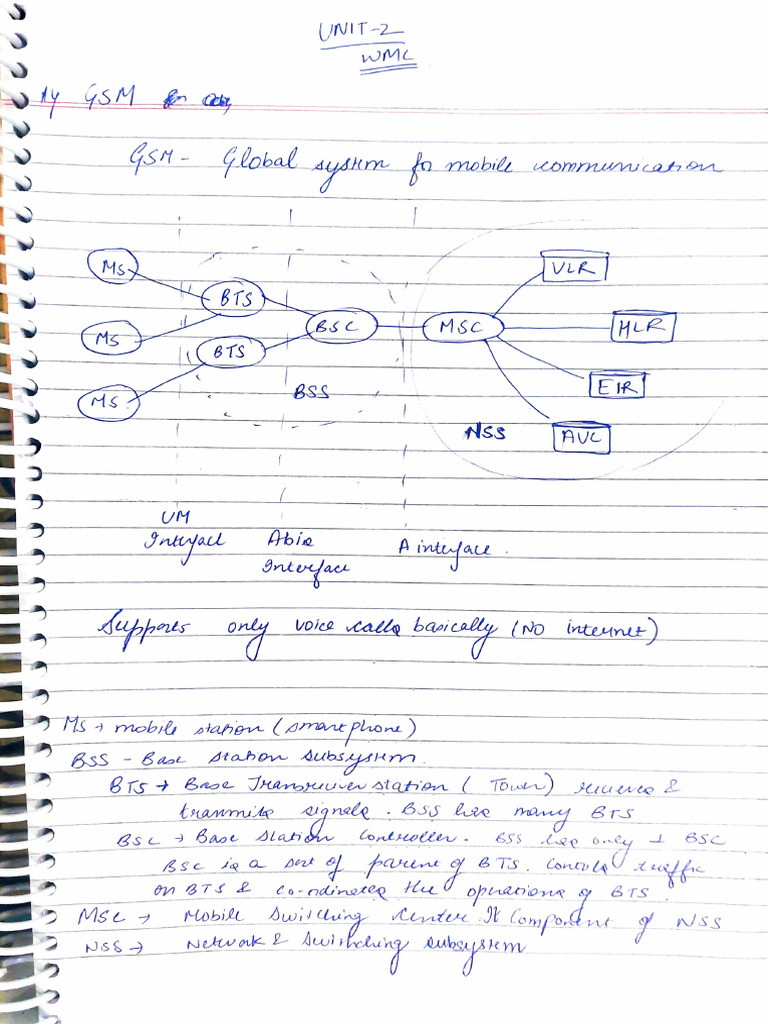 UNIT-2
WMC
1) GSM
GSM - Global system for mobile communication
MS
BTS
MS
BTS
MS
BSC
BSS
MSC
VLR
HLR
EIR
AUC
NSS
UM
Interface
Abis
Interface
A interface.
Supports only voice calls basically (NO internet)
MS → mobile station (smartphone)
BSS - Base station subsystem.
BTS → Base Transreciver station ( Tower) recieves &
tranmits signals. BSS has many BTS
BSC → Base station controller. BSS has only 1 BSC
BSC is a sort of parent of BTS. Controls traffic
on BTS & co-ordinates the operations of BTS.
MSC → Mobile Switching Center. It Component of NSS
NSS → Network & Switching subsystem